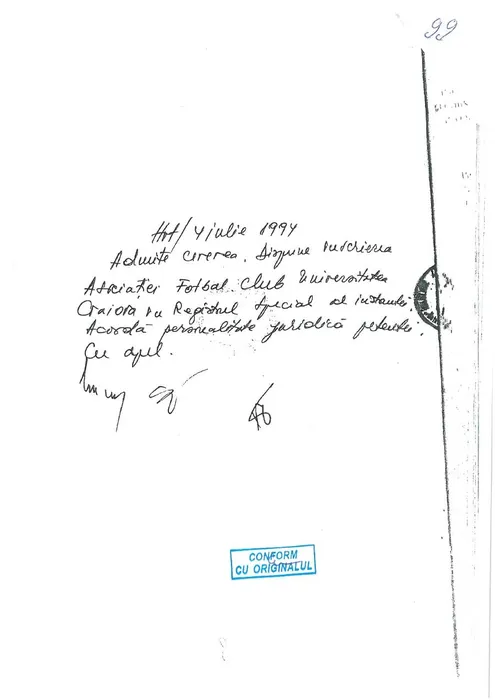 99
Hot/ 4 iulie 1994
Admite cererea. Dispune înscrierea
Asociației Fotbal Club Universitatea
Craiova în Registrul Special al instanței
Acordă personalitate juridică petentei.
Cu apel.
CONFORM
CU ORIGINALUL